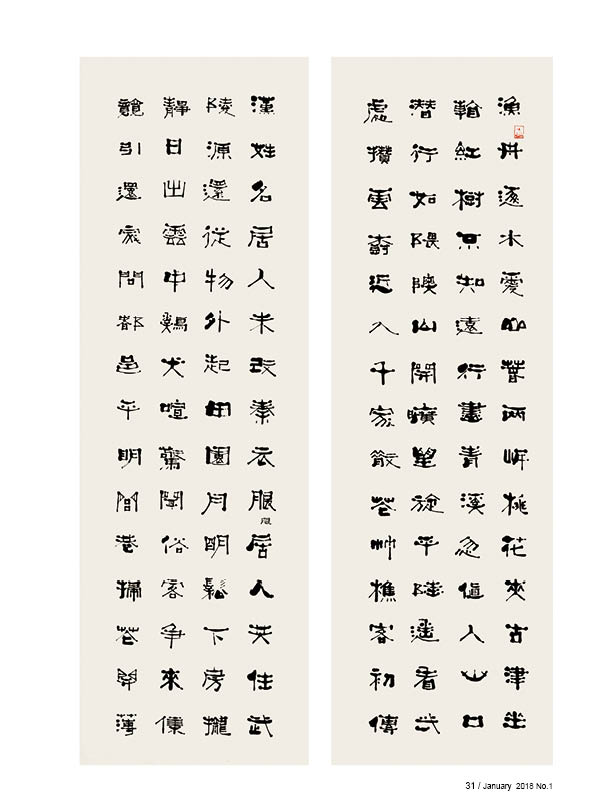 漁舟逐水愛山春兩岸桃花夾古津坐
看紅樹不知遠行盡青溪忽值人山口
潛行始隈隩山開曠望旋平陸遙看弌
處攢雲樹近入千家散花竹樵客初傳
漢姓名居人未改秦衣服居人共住武
陵源還從物外起田園月明鬆下房櫳
靜日出雲中鷄犬喧驚聞俗客爭來集
競引還家問都邑平明閭巷掃花開薄
31 / January 2018 No.1